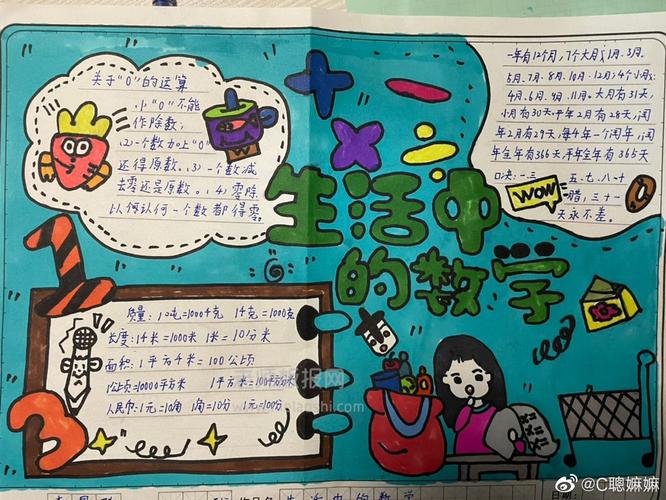 关于“0”的运算
(1)“0”不能
作除数;
(2)一个数加上“0”
还得原数。(3)一个数减
去零还是原数。(4)零除
以何认何一个数都得零。
一年有12个月,7个大月;1月.3月.
5月.7月.8月.10月.12月;4个小月;
4月.6月.9月.11月。大月有31天,
小月有30天平年2月有28天,闰
年2月有29天,每4年一个闰年,闰
年全年有366天平年全年有365天
口决:一三
五.七.八.十
腊,三十一
天永不差。
WOW
生活中
的数学
1
3
质量:1吨=1000千克 1千克=1000克
长度:1千米=1000米 1米=10分米
面积:1平方千米=100公顷
1公顷=10000平方米
人民币:1元=10角 1角=10分 1元=100分
生活中的数学
@C聪嫲嫲